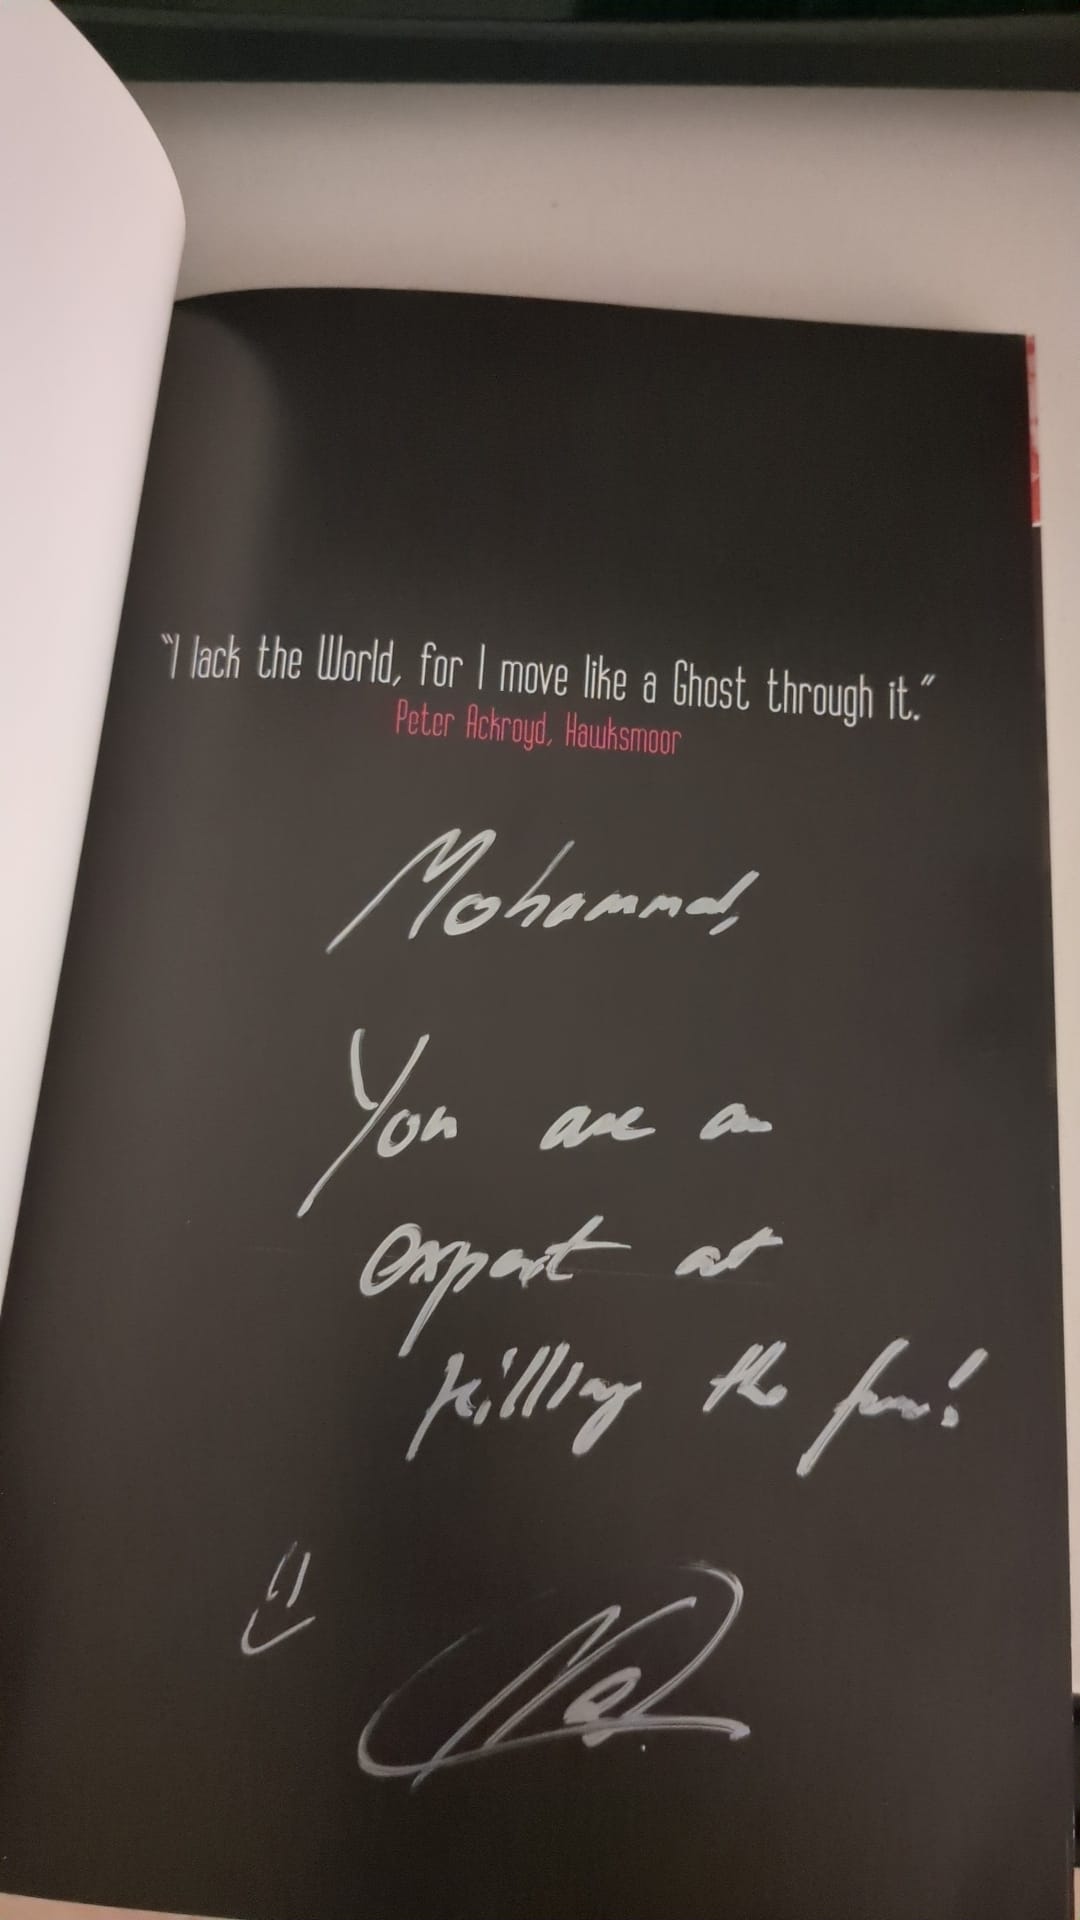 “I lack the World, for I move like a Ghost through it.”
Peter Ackroyd, Hawksmoor
Mohammad,
You are an
expert at
killing the fun!